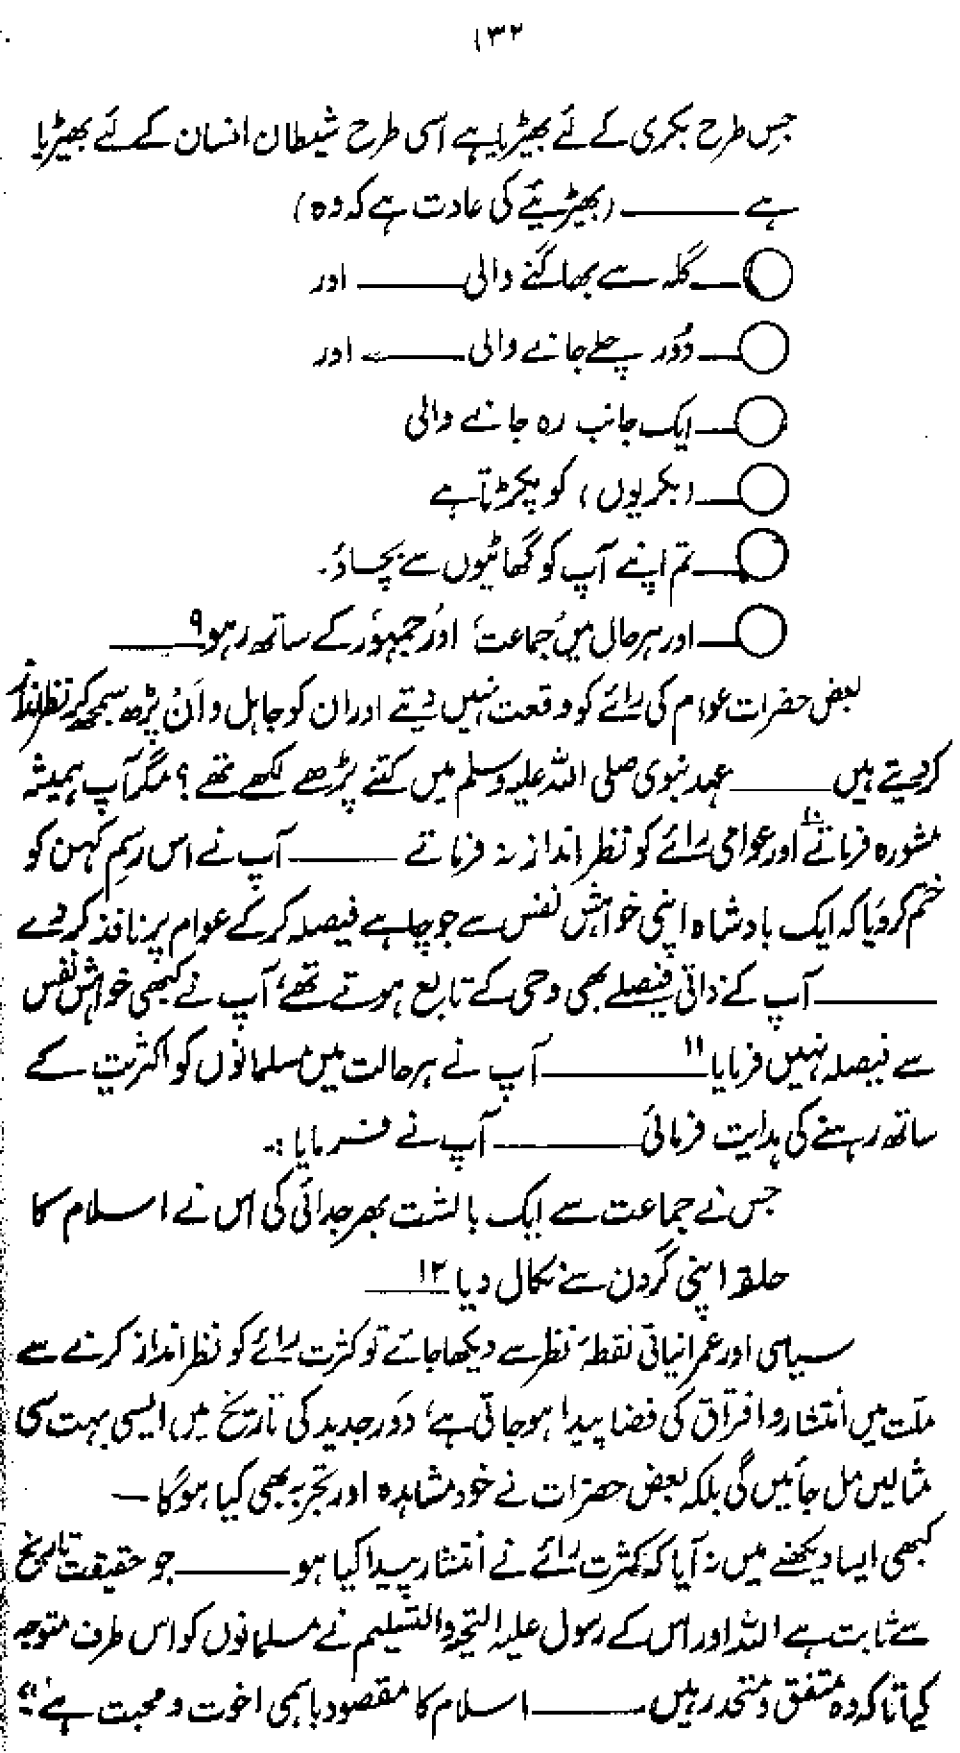 ۱۳۲
جس طرح بکری کے لئے بھیڑیا ہے اسی طرح شیطان انسان کے لئے بھیڑیا
ہے ——— (بھیڑیئے کی عادت ہے کہ وہ)
○— گلہ سے بھاگنے والی ——— اور
○— دُور چلے جانے والی ——— اور
○— ایک جانب رہ جانے والی
○— (بکریوں) کو پکڑتا ہے
○— تم اپنے آپ کو گھاٹیوں سے بچاؤ۔
○— اور ہر حال میں جماعت اور جمہور کے ساتھ رہو ۹ ———
بعض حضرات عوام کی رائے کو وقعت نہیں دیتے اور ان کو جاہل و ان پڑھ سمجھ کر نظرانداز
کر دیتے ہیں ——— عہد نبوی صلی اللہ علیہ وسلم میں کتنے پڑھے لکھے تھے؟ مگر آپ ہمیشہ
مشورہ فرماتے ۱۰ اور عوامی رائے کو نظر انداز نہ فرماتے ——— آپ نے اس رسمِ کہن کو
ختم کر دیا کہ ایک بادشاہ اپنی خواہش نفس سے جو چاہے فیصلہ کر کے عوام پر نافذ کر دے
——— آپ کے ذاتی فیصلے بھی وحی کے تابع ہوتے تھے، آپ نے کبھی خواہش نفس
سے فیصلہ نہیں فرمایا ۱۱ ——— آپ نے ہر حالت میں مسلمانوں کو اکثریت کے
ساتھ رہنے کی ہدایت فرمائی ——— آپ نے فرمایا :۔
جس نے جماعت سے ایک بالشت بھر جدائی کی اس نے اسلام کا
حلقہ اپنی گردن سے نکال دیا ۱۲ ———
سیاسی اور عمرانیاتی نقطۂ نظر سے دیکھا جائے تو کثرت رائے کو نظر انداز کرنے سے
ملت میں انتشار و افتراق کی فضا پیدا ہو جاتی ہے، دَور جدید کی تاریخ میں ایسی بہت سی
مثالیں مل جائیں گی بلکہ بعض حضرات نے خود مشاہدہ اور تجربہ بھی کیا ہوگا —
کبھی ایسا دیکھنے میں نہ آیا کہ کثرت رائے نے انتشار پیدا کیا ہو ——— جو حقیقت تاریخ
سے ثابت ہے اللہ اور اس کے رسول علیہ التحیۃ والتسلیم نے مسلمانوں کو اس طرف متوجہ
کیا تاکہ وہ متفق و متحد رہیں ——— اسلام کا مقصود باہمی اخوت و محبت ہے،